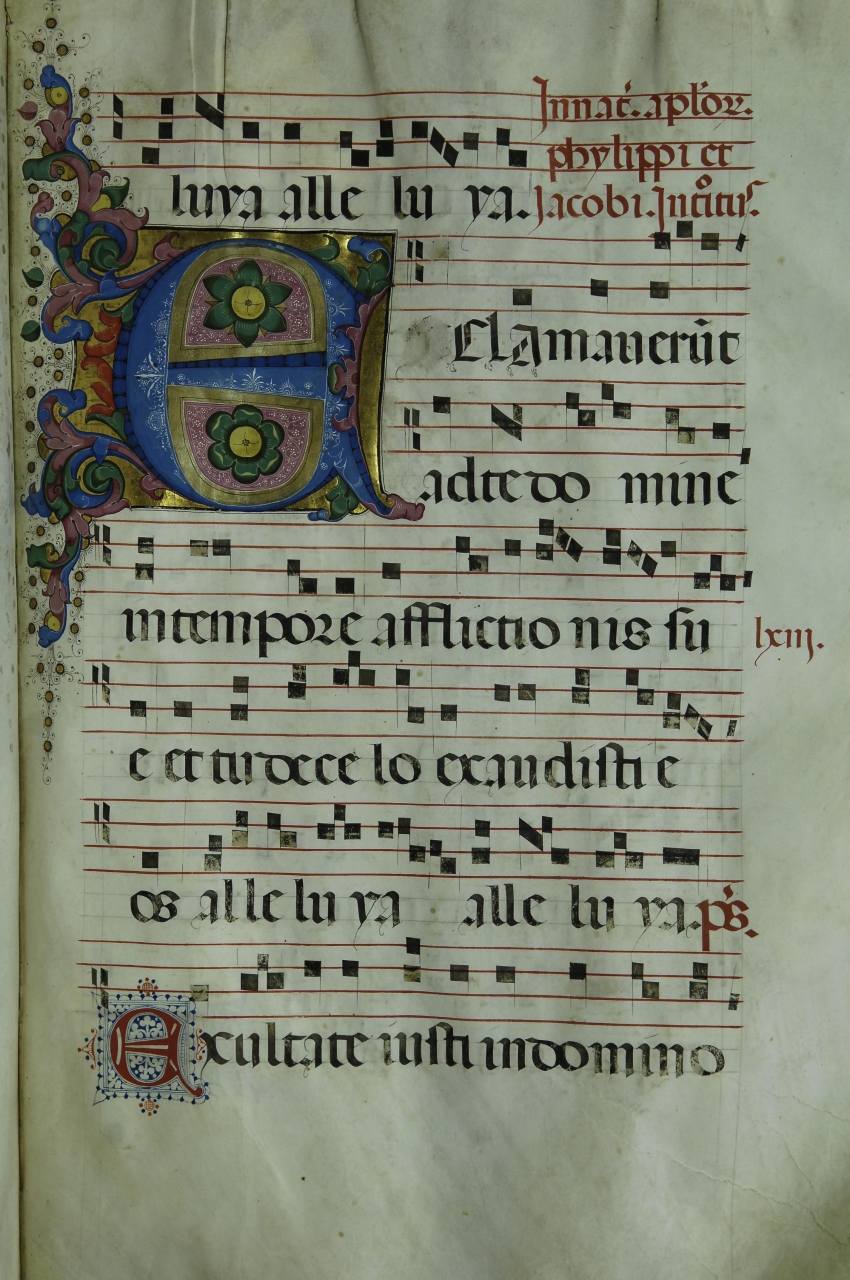 Jn nat̄. apl'or̄.
phylippi et
luya alle lu ya. Jacobi. Jntoitus.
EClamauerūt
ad te do mine
in tempore afflictio nis su
lxiij.
e et tu de ce lo exaudisti e
os alle lu ya alle lu ya. ps.
Exultate iusti in domino